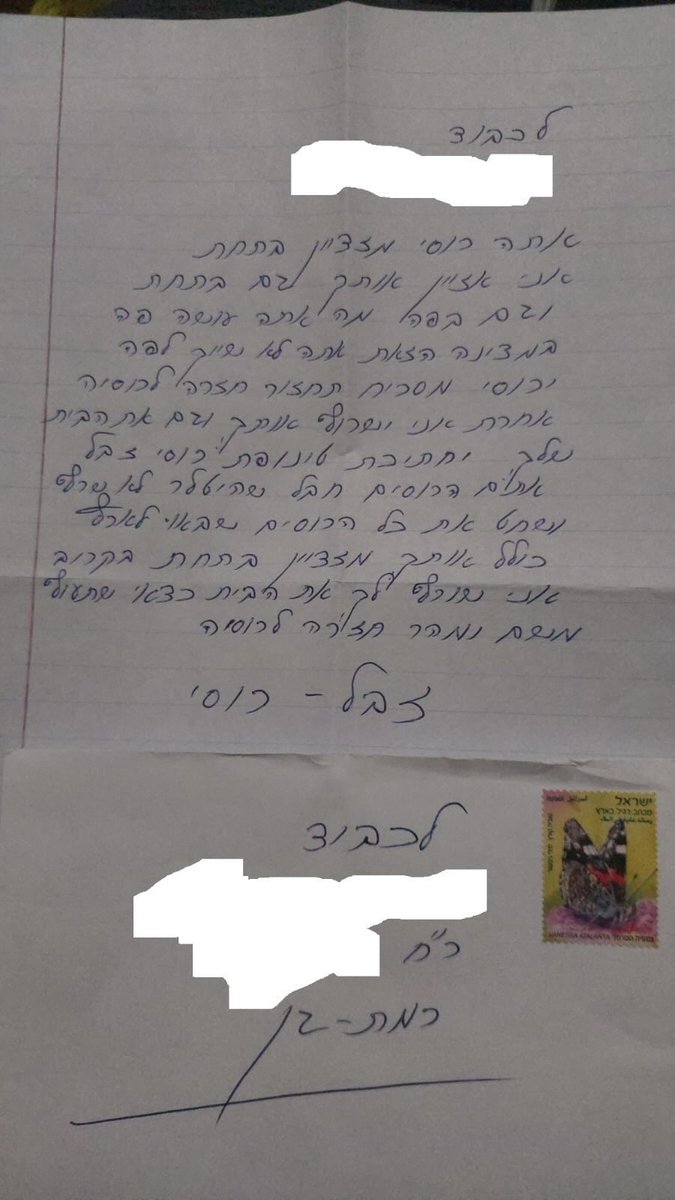 לכבוד
אתה רוסי מזציין בתחת
אני אזיין אותך גם בתחת
וגם בפה מה אתה עושה פה
במצינה הזאת אתה לא שייך לפה
ירוסי מסריח תחזור חזרה לרוסיה
אחרת אני ישרוף אותך וגם את הבית
שלך יחתיכת טינופת רוסי זבל
אתים הרוסים חבל שהיטלר לא שרף
ושחט את כל הרוסים שבאו לארץ
כולל אותך מזציין בתחת בקרוב
אני שורף לך את הבית כצאי שתעוף
מנשם ומהר חזרה לרוסיה
זבל - רוסי
לכבוד
ר"ח
רמת-גן
ישראל
מכתב רגיל בארץ
VANESSA ATALANTA